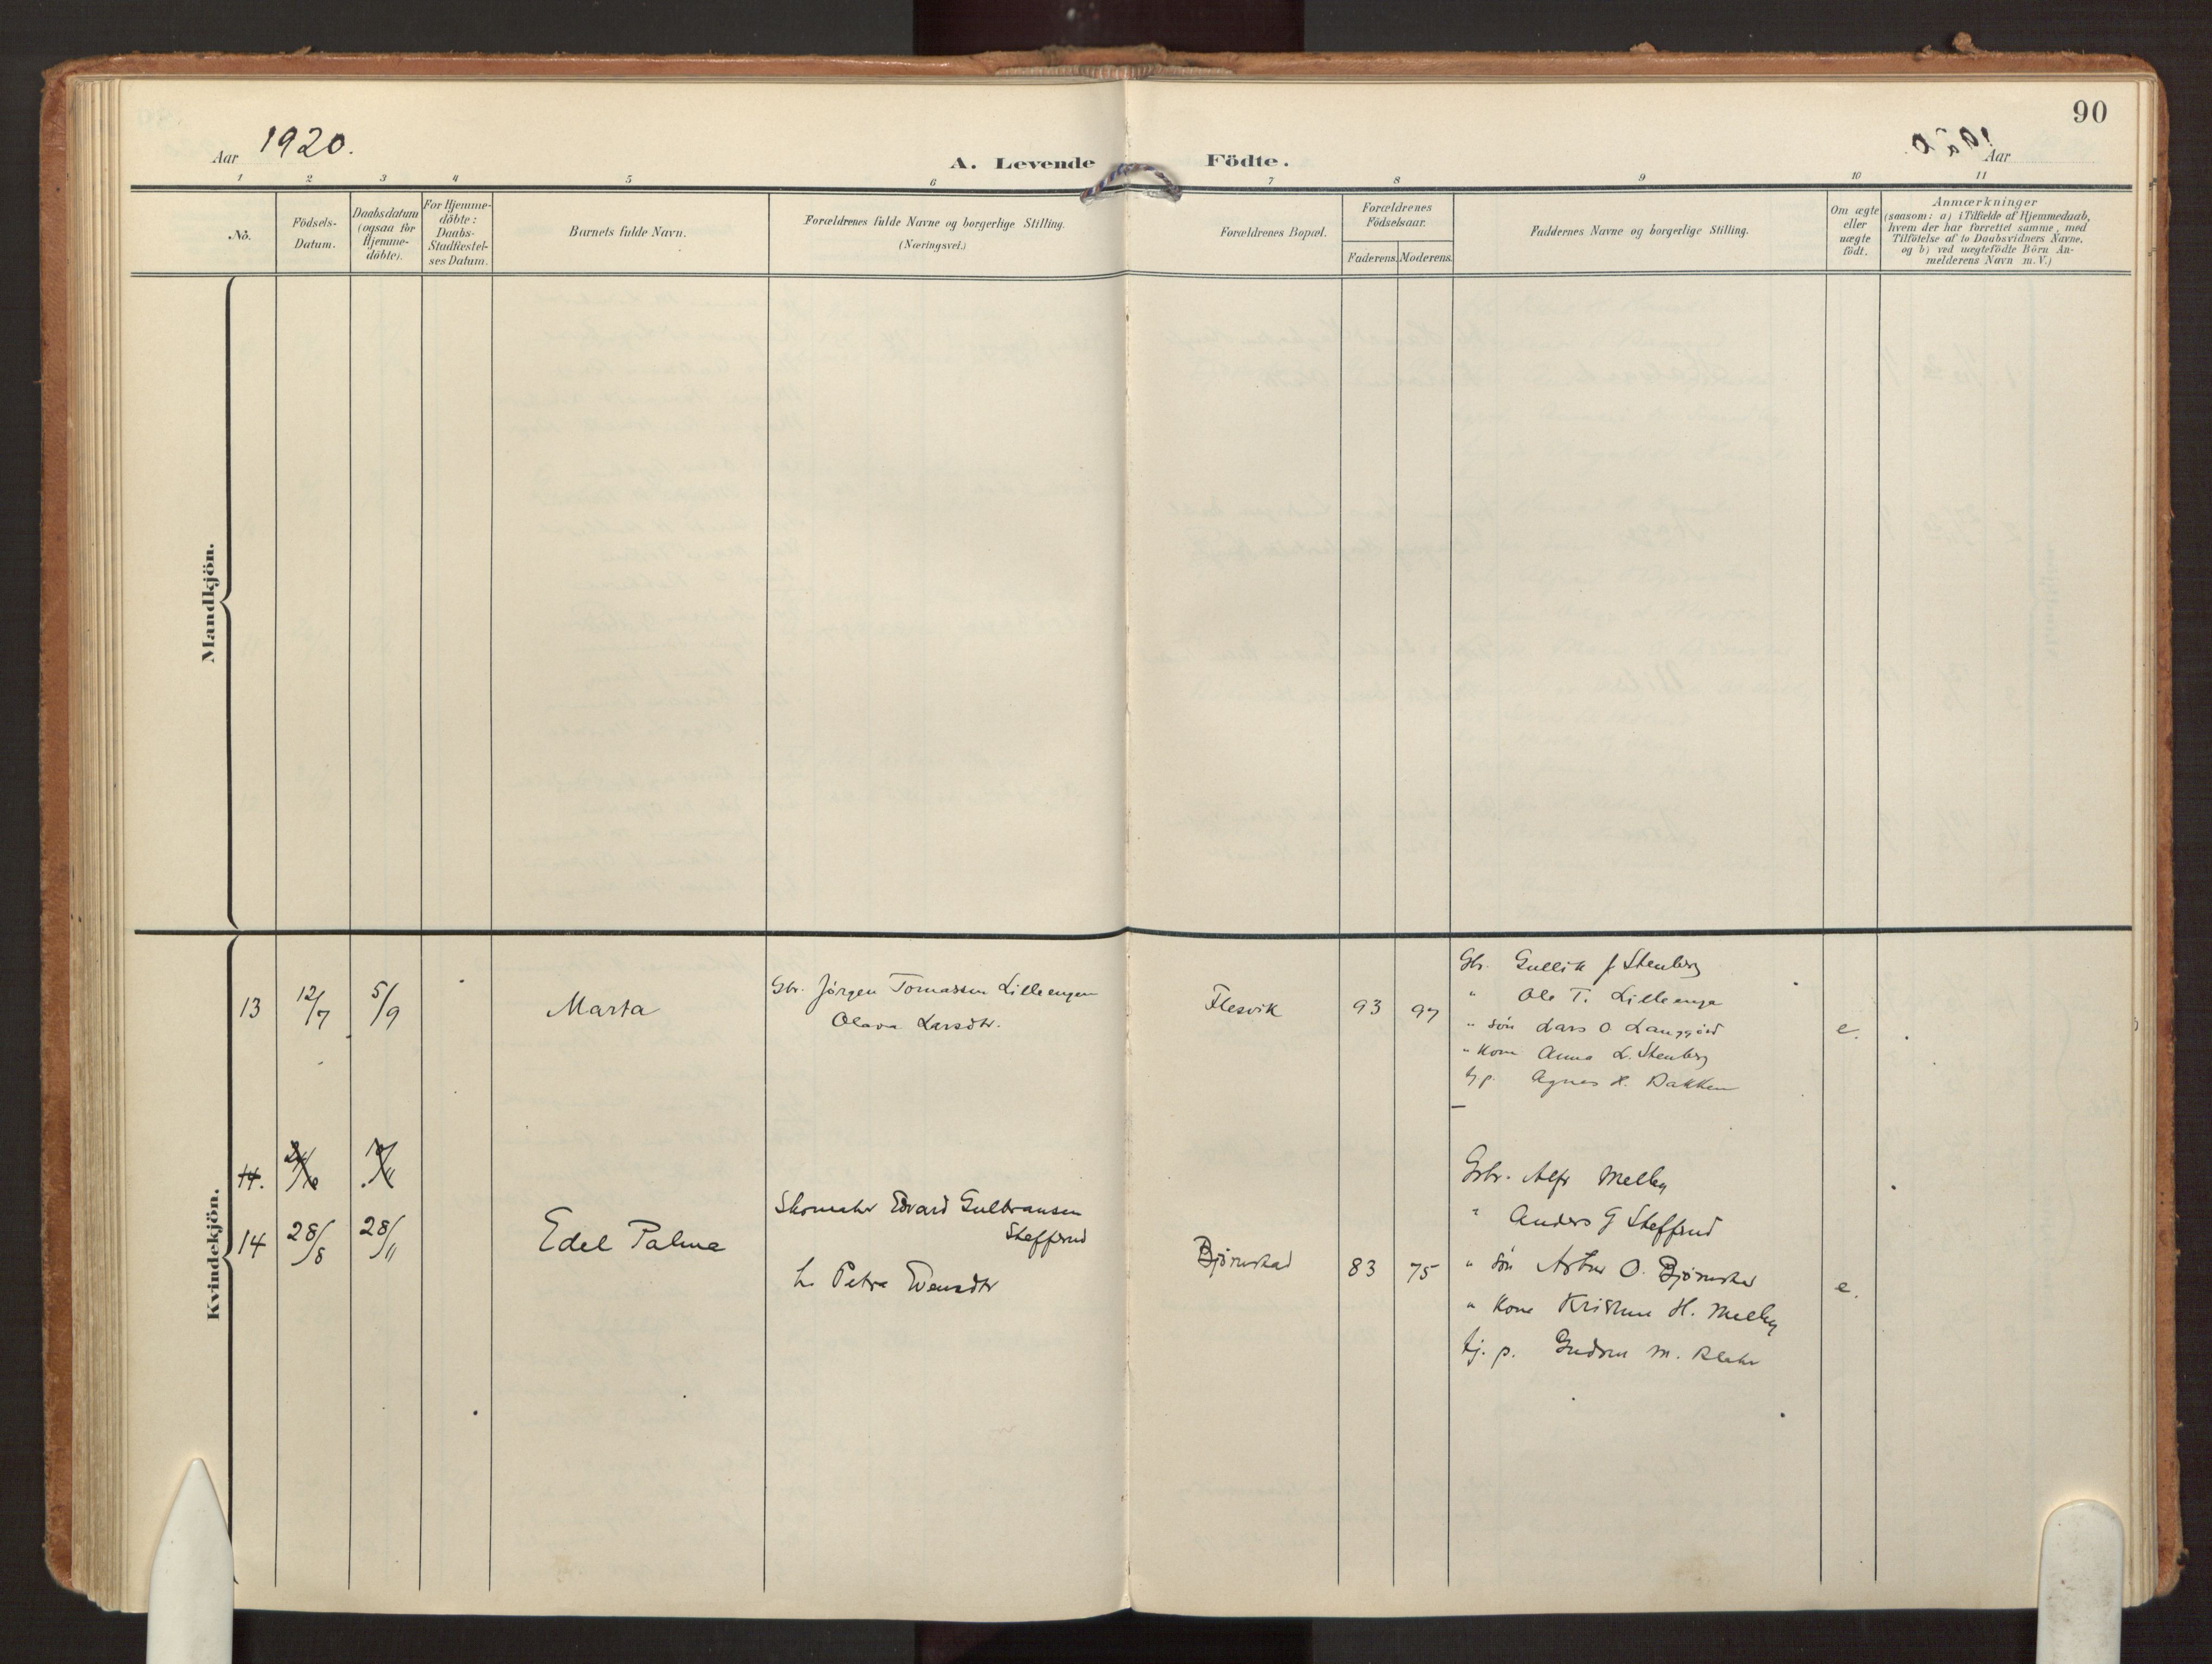 90
Aar 1920.
A. Levende Födte.
Aar
1 2 3 4 5 6 7 8 9 10 11
No.
Födsels-
Datum.
Daabsdatum
(ogsaa for
Hjemme-
döbte).
For Hjemme-
döbte:
Daabs-
Stadfæstel-
ses Datum.
Barnets fulde Navn.
Forældrenes fulde Navne og borgerlige Stilling.
(Næringsvei.)
Forældrenes Bopæl.
Forældrenes
Födselsaar.
Faderens. Moderens.
Faddernes Navne og borgerlige Stilling.
Om ægte
eller
uægte
födt.
Anmærkninger
(saasom: a) i Tilfælde af Hjemmedaab,
hvem der har forrettet samme, med
Tilföielse af to Daabsvidners Navne,
og b) ved uægtefödte Börn An-
melderens Navn m. V.)
Mandkjön.
Kvindekjön.
13 12/7 5/9 Marta
Gbr. Jörgen Tomassen Lilleengen
Olava Larsdtr.
Flesvik 93 97
Gbr. Gullik J Stenberg
" Ole T. Lilleenge
" sön Lars O. Langgård
" Kone Anna L. Stenberg
tj p. Agnes H. Bakken
e.
14.
14 28/8 28/11 Edel Palma
Skomaker Edvard Gulbransen
Steffsrud
h. Petra Evensdtr
Björnstad 83 75
Gbr. Alfr Melby
" Anders G Steffsrud
" sön Astur O. Björnstad
" Kone Kristine H. Melby
tj. p. Gudrun M.
e.